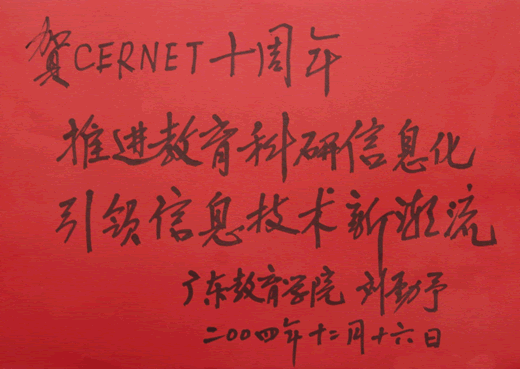 贺CERNET十周年
推进教育科研信息化
引领信息技术新潮流
广东教育学院 刘劲予
二00四年十二月十六日